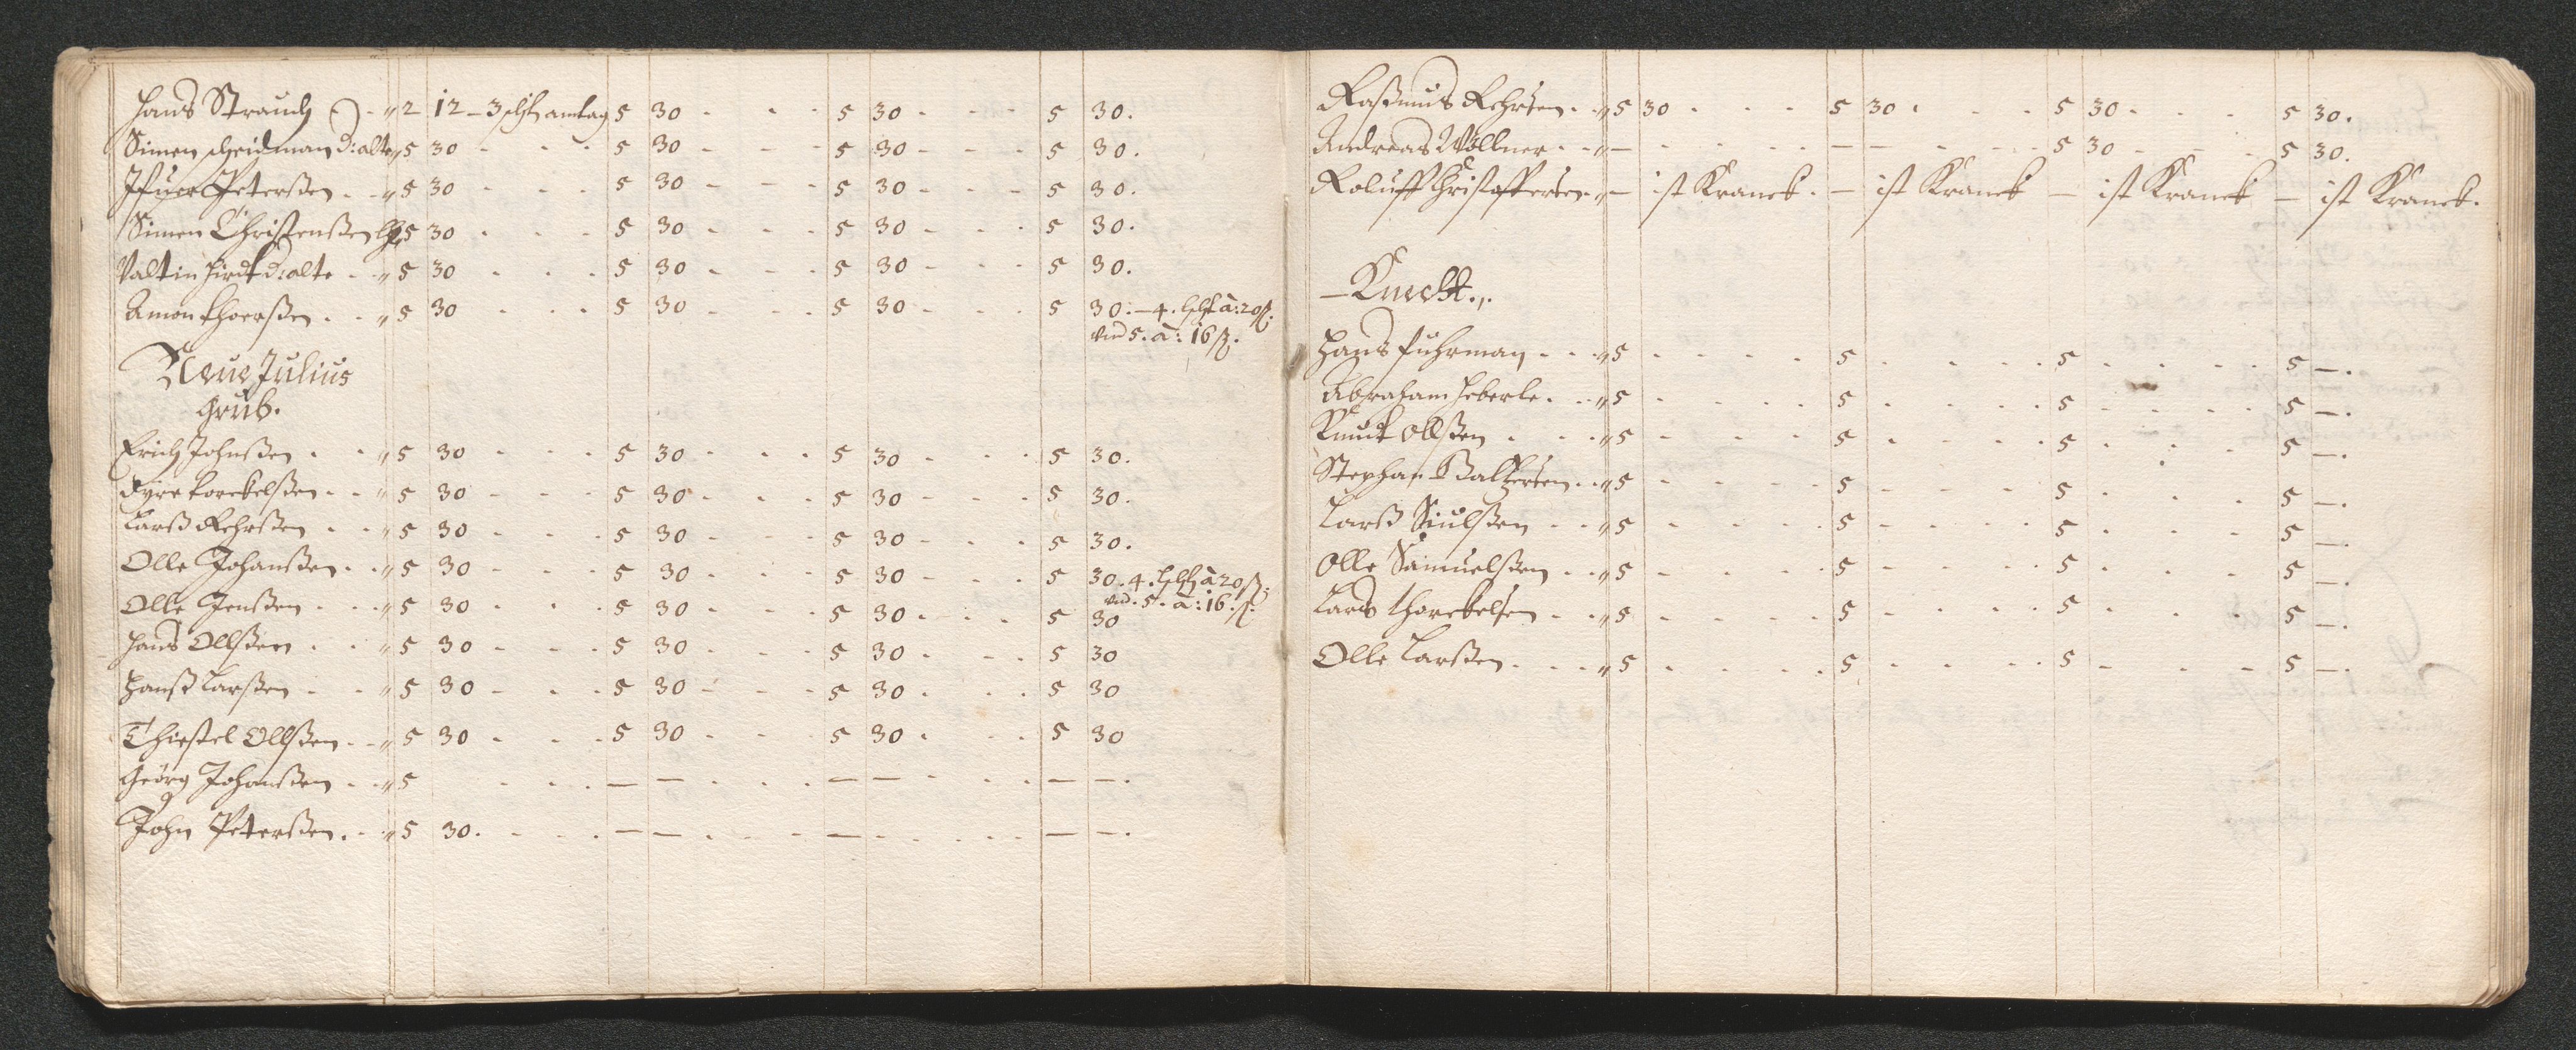 Hans Strauch - " 2 12 - 3 schh anlag 5 30 - - 5 30 - - 5 30.
Simen scheidman d: alte " 5 30 - - - 5 30 - - - 5 30 - - - 5 30.
Ifuer Peterßen - - " 5 30 - - - 5 30 - - - 5 30 - - - 5 30.
Simen Christenßen " 5 30 - - - 5 30 - - - 5 30 - - - 5 30.
Valtin Hirdt d: alte - - " 5 30 - - - 5 30 - - - 5 30 - - - 5 30.
Amon thorßen - - " 5 30 - - - 5 30 - - - 5 30 - - - 5 30. - 4. à: 20 ß:
vnd 5. à: 16 ß.
Neue Julius
grub.
Erich Johnßen - - " 5 30 - - - 5 30 - - - 5 30 - - - 5 30.
Dyre torckelßen - - " 5 30 - - - 5 30 - - - 5 30 - - - 5 30.
Larß Rehrßen - - " 5 30 - - - 5 30 - - - 5 30 - - - 5 30.
Olle Johanßen - - " 5 30 - - - 5 30 - - - 5 30 - - - 5 30. 4. à 20 ß:
vnd. 5. à: 16. ß.
Olle Jenßen - - - " 5 30 - - - 5 30 - - - 5 30 - - - 5 30
Hans Ollßen - - " 5 30 - - - 5 30 - - - 5 30 - - - 5 30
Hanß Larßen - - " 5 30 - - - 5 30 - - - 5 30 - - - 5 30
Thiestel Ollßen - - " 5 30 - - - 5 30 - - - 5 30 - - - 5 30
Georg Johanßen - - " 5 - - - — — - - - — — - - - — —.
John Peterßen - - " 5 30. - - - — — - - - — — - - - — —.
Raßmus Rehrsen - - " 5 30 - - - 5 30 - - - 5 30 - - - 5 30.
Andreas Wöllner - - " — - - - — — - - - 5 30 - - - 5 30.
Roluff Christoffersen " — ist Kranck. — ist Kranck — ist Kranck — ist Kranck.
— Knecht.
Hans fuhrman - - - " 5 - - - - 5 - - - - 5 - - - - 5 —.
Abraham Heberle - - " 5 - - - - 5 - - - - 5 - - - - 5 —.
Knut Ollßen - - - " 5 - - - 5 - - - - 5 - - - 5 —.
Stephan Baltzersen - - " 5 - - - - 5 - - - 5 - - - 5 —.
Larß Siulßen - - " 5 - - - - 5 - - - - 5 - - - 5 —.
Olle Samuelßen - - " 5 - - - - 5 - - - - 5 - - - 5 —.
Lars thorckelsen - - " 5 - - - - 5 - - - - 5 - - - 5 —.
Olle Larßen - - - " 5 - - - - 5 - - - - 5 - - - 5 —.